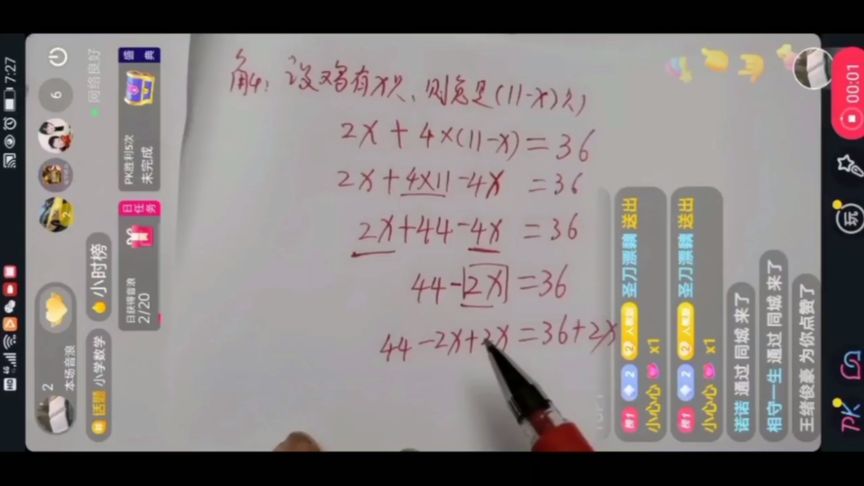 解：设鸡有x只、则兔是(11-x)只
2x+4×(11-x)=36
2x+4×11-4x=36
2x+44-4x=36
44-2x=36
44-2x+2x=36+2x
7:27
HD
6
网络良好
盛典
PK胜利5次
未完成
2
日任务
日获得音浪
2/20
小时榜
2
本场音浪
话题 小学数学
圣刀漂骑 送出
小心心 x1
圣刀漂骑 送出
小心心 x1
诺诺 通过 同城 来了
相守一生 通过 同城 来了
王绪俊豪 为你点赞了
00:01
玩
PK